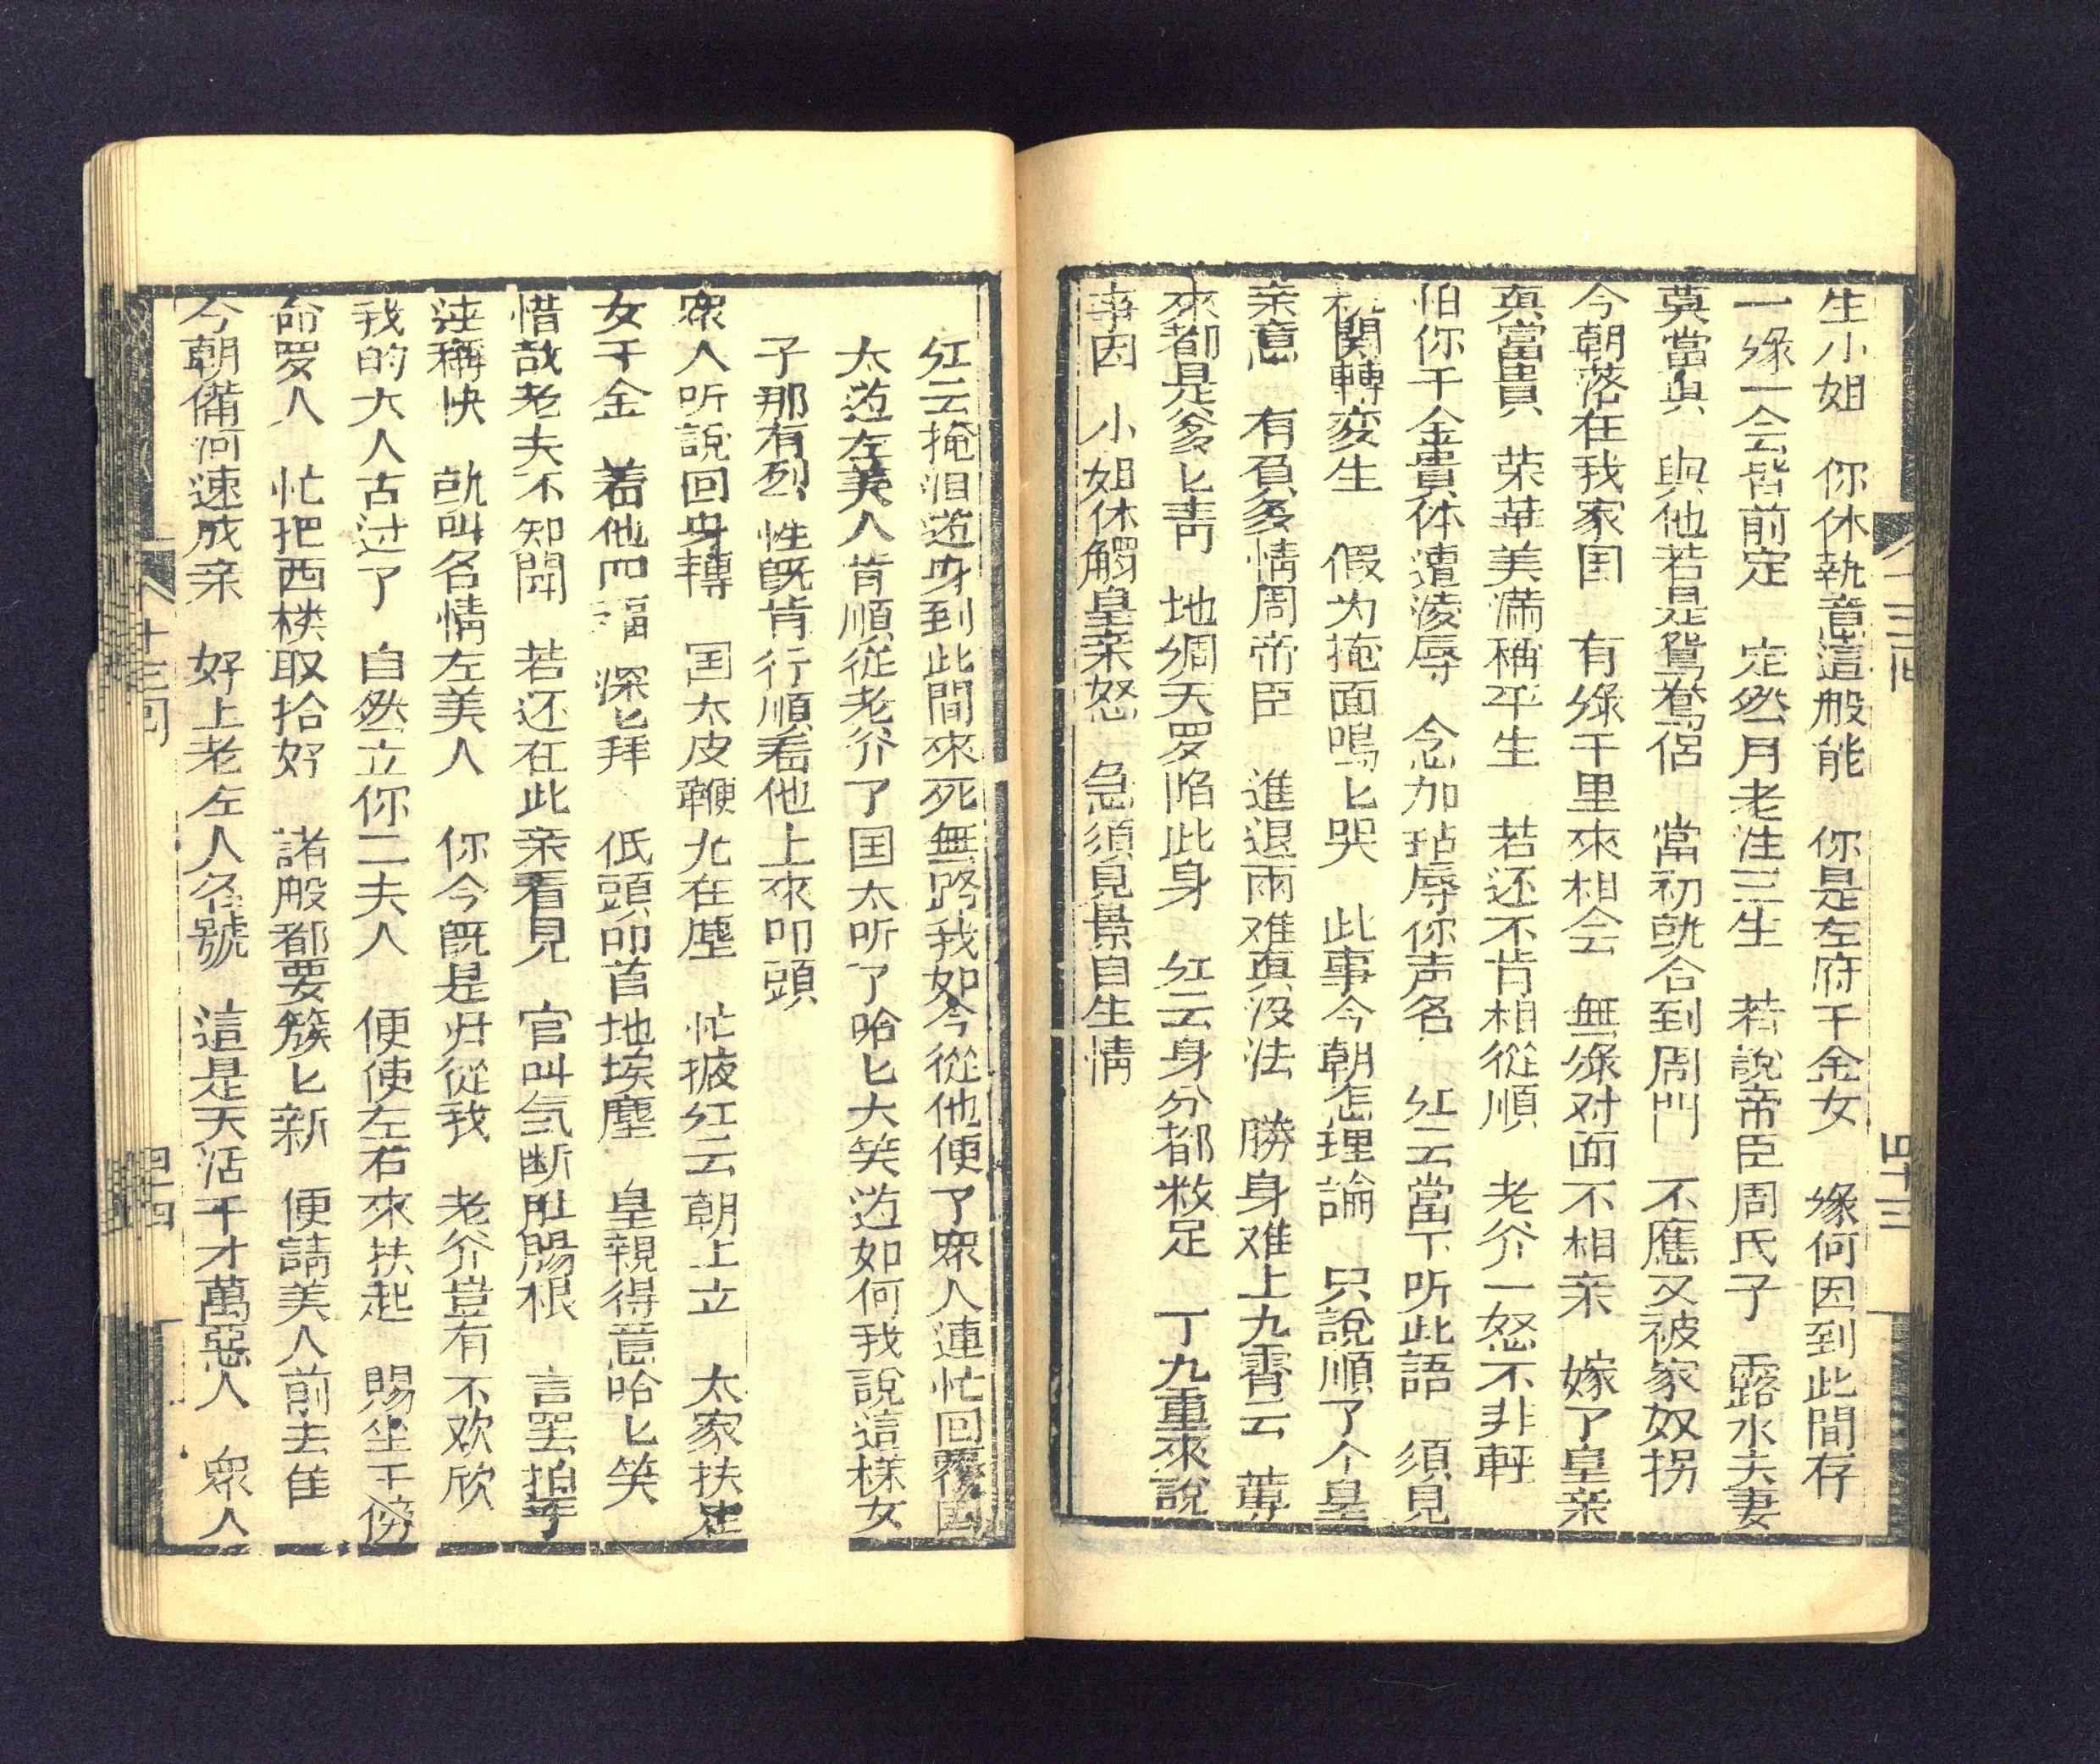 生小姐　你休執意這般能　你是左府千金女　緣何因到此間存
一緣一会皆前定　定然月老注三生　若說帝臣周氏子　露水夫妻
莫當眞　與他若是鴛鴦侶　當初就合到周門　不應又被家奴拐
今朝落在我家国　有緣千里來相会　無緣对面不相亲　嫁了皇亲
眞當貴　荣華美滿稱平生　若还不肯相從順　老爷一怒不非軽
怕你千金貴体遭淩辱　念加玷辱你声名　红云當下听此語　須見
机関轉変生　假为掩面嗚匕哭　此事今朝怎理論　只說順了今皇
亲意　有負多情周帝臣　進退兩难眞没法　勝身难上九霄云　蓴
來都是爹匕害　地綱天罗陷此身　红云身分都敉足　丁九重來說
事因　小姐休觸皇亲怒　急須見景自生情
十三回
四十三
红云掩泪道身到此間來死無路我如今從他便了衆人連忙回覆国
太道左美人肯順從老爷了国太听了哈匕大笑道如何我說這樣女
子那有烈性旣肯行順着他上來叩頭
衆人听說回身轉　国太皮鞭尢在塵　忙掖红云朝上立　太家扶定
女千金　着他四福深匕拜　低頭叩首地埃塵　皇親得意哈匕笑
惜哉老夫不知聞　若还在此亲看見　官叫気断肚腸根　言罢拍手
連稱快　就叫名情左美人　你今旣是归從我　老爷豈有不欢欣
我的大人古过了　自然立你二夫人　便使左右來扶起　賜坐于傍
命罗人　忙把西楼取拾好　諸般都要簇匕新　便請美人前去隹
今朝備酒速成亲　好上老左人名號　這是天活千才萬惡人　衆人
十三回
四十四